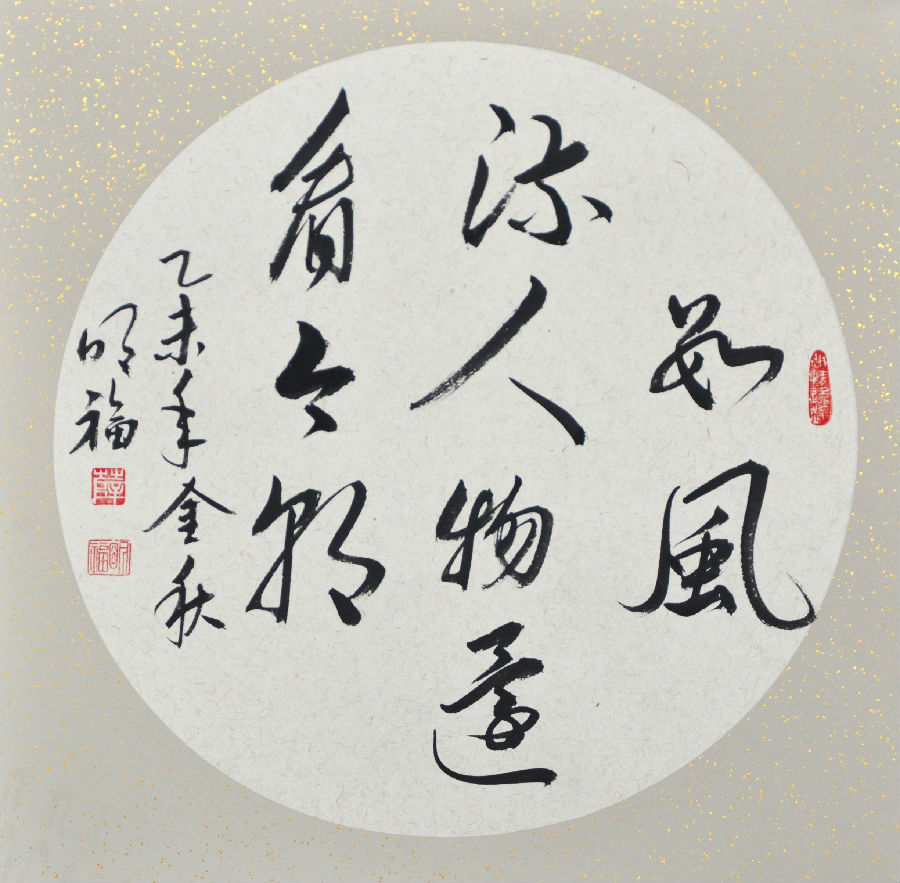 數風
流人物還
看今朝
乙未年金秋
明福
明福